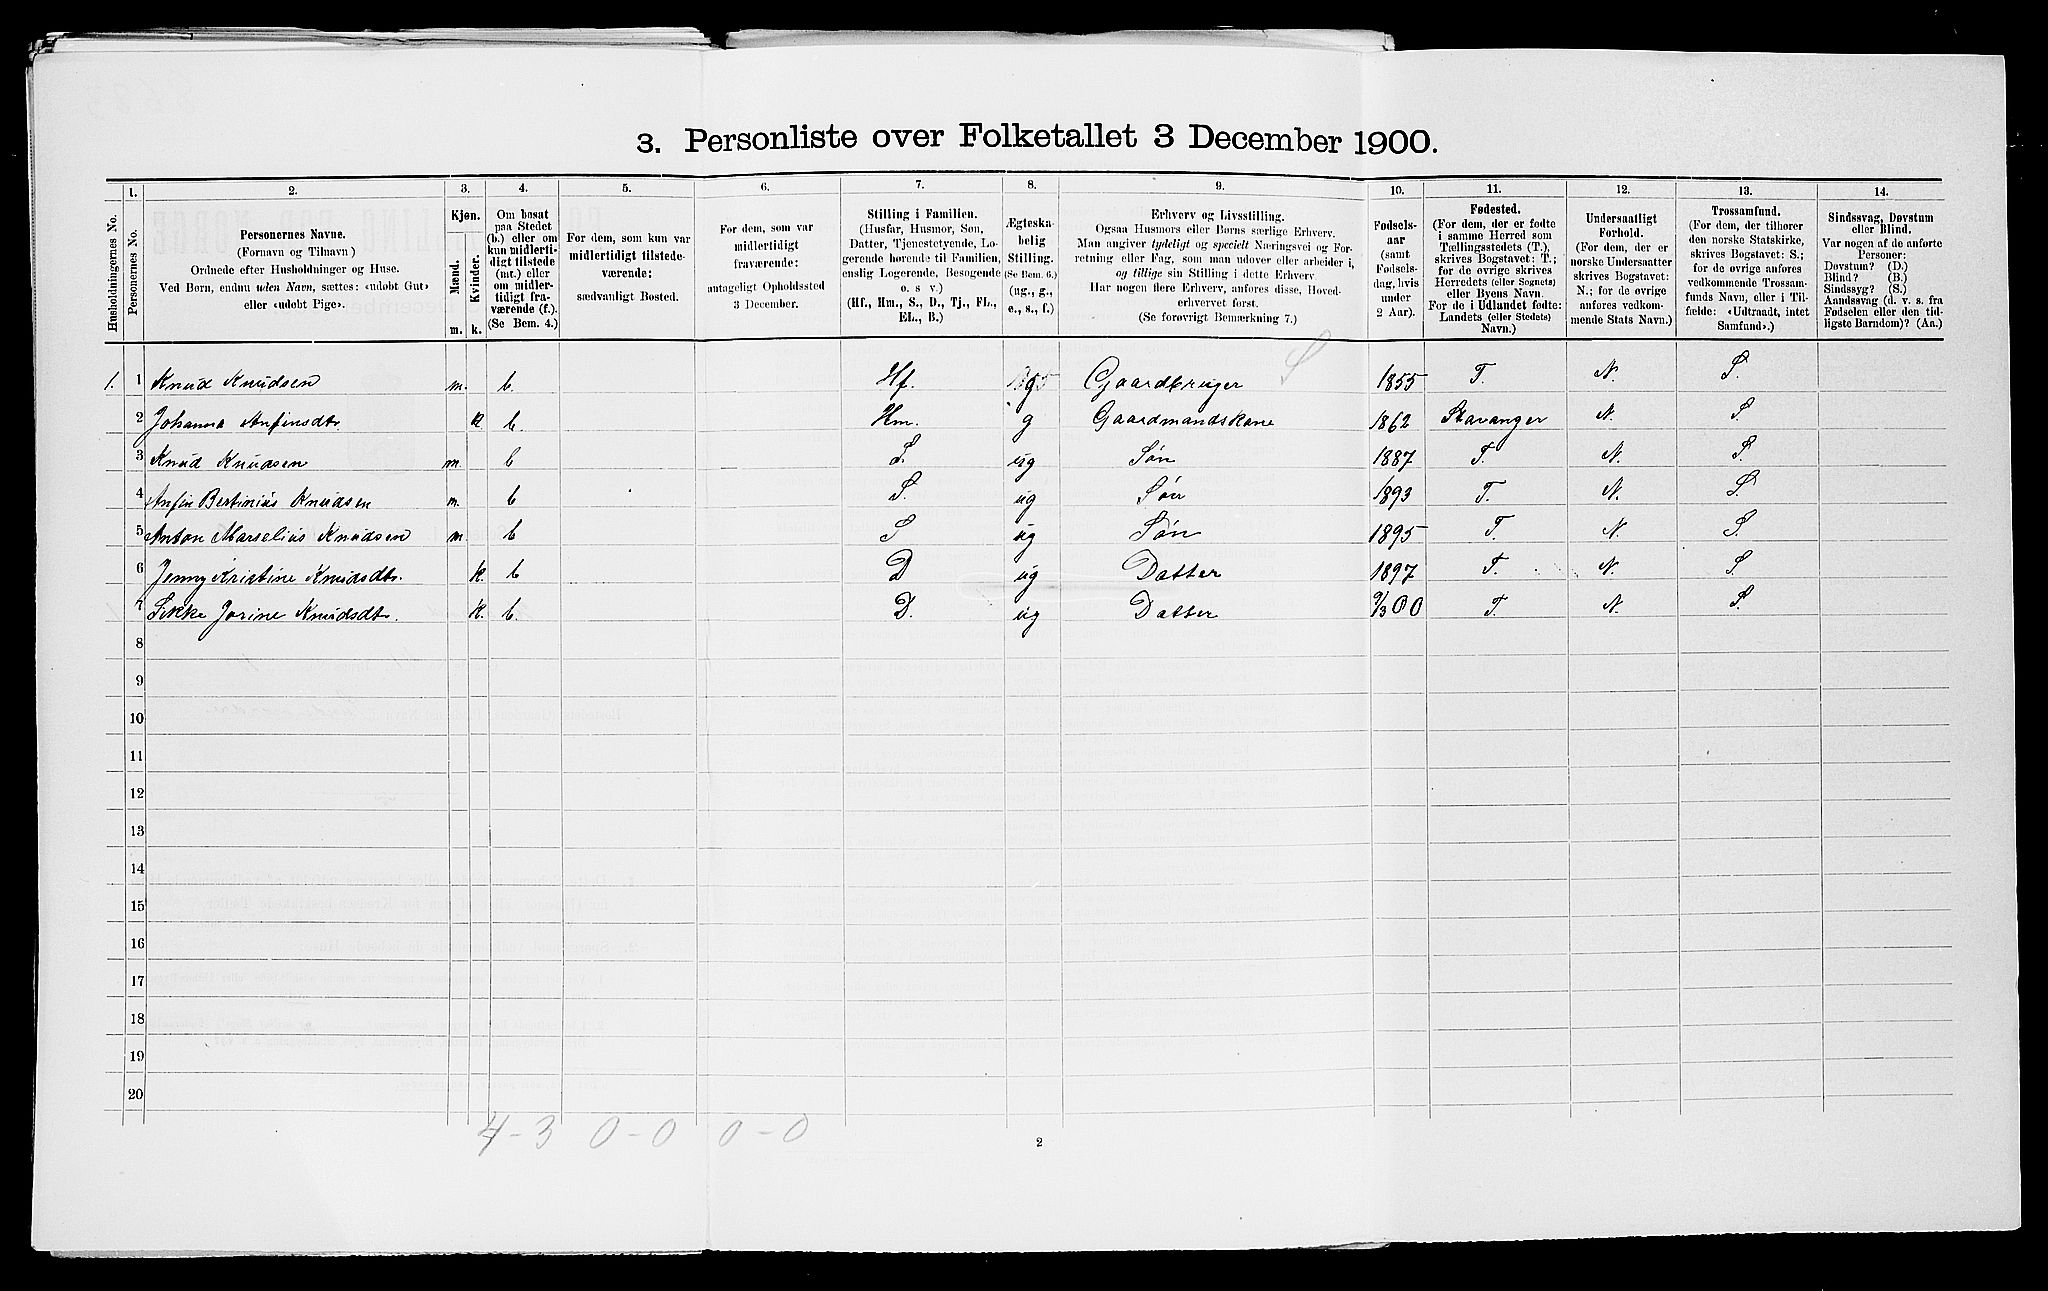 3. Personliste over Folketallet 3 December 1900.
1. 2. 3. 4. 5. 6. 7. 8. 9. 10. 11. 12. 13. 14.
Husholdningernes No.
Personernes No.
Personernes Navne.
(Fornavn og Tilnavn)
Ordnede efter Husholdninger og Huse.
Ved Børn, endnu uden Navn, sættes: «udøbt Gut»
eller «udøbt Pige».
Kjøn.
Mænd.
Kvinder.
m. k.
Om bosat
paa Stedet
(b.) eller om
kun midlerti-
digt tilstede
(mt.) eller
om midler-
tidigt fra-
værende (f.).
(Se Bem. 4.)
For dem, som kun var
midlertidigt tilstede-
værende:
sædvanligt Bosted.
For dem, som var
midlertidigt
fraværende:
antageligt Opholdssted
3 December.
Stilling i Familien.
(Husfar, Husmor, Søn,
Datter, Tjenestetyende, Lo-
gerende hørende til Familien,
enslig Logerende, Besøgende
o. s v.)
(Hf., Hm., S., D., Tj., FL.,
EL., B.)
Ægteska-
belig
Stilling.
(Se Bem. 6.)
(ug., g.,
e., s., f.)
Erhverv og Livsstilling.
Ogsaa Husmors eller Børns særlige Erhverv.
Man angiver tydeligt og specielt Næringsvei og For-
retning eller Fag, som man udøver eller arbeider i,
og tillige sin Stilling i dette Erhverv.
Har nogen flere Erhverv, anføres disse, Hoved-
erhvervet først.
(Se forøvrigt Bemærkning 7.)
Fødsels-
aar
(samt
Fødsels-
dag, hvis
under
2 Aar).
Fødested.
(For dem, der er fødte
i samme Herred som
Tællingsstedets (T.),
skrives Bogstavet: T.;
for de øvrige skrives
Herredets (eller Sognets)
eller Byens Navn.
For de i Udlandet fødte:
Landets (eller Stedets)
Navn.)
Undersaatligt
Forhold.
(For dem, der er
norske Undersaatter
skrives Bogstavet:
N.; for de øvrige
anføres vedkom-
mende Stats Navn.)
Trossamfund.
(For dem, der tilhører
den norske Statskirke,
skrives Bogstavet: S.;
for de øvrige anføres
vedkommende Trossam-
funds Navn, eller i Til-
fælde: «Udtraadt, intet
Samfund».)
Sindssvag, Døvstum
eller Blind.
Var nogen af de anførte
Personer:
Døvstum? (D.)
Blind? (B.)
Sindssyg? (S.)
Aandssvag (d. v. s. fra
Fødselen eller den tid-
ligste Barndom)? (Aa.)
1. 1 Knud Knudsen m. b. Hf. g Gaardbruger S 1855 T. N. S.
2 Johanna Anfinsdtr. k b. Hm. g Gaardmandskone 1862 Stavanger N. S.
3 Knud Knudsen m. b S. ug Søn 1887 T. N. S.
4 Anfin Bertinius Knudsen m. b S. ug Søn 1893 T. N. S.
5 Anton Marselius Knudsen m. b S ug Søn 1895 T. N. S.
6 Jenny Kristine Knudsdtr. k. b D ug Datter 1897 T. N. S.
7 Sikke Jorine Knudsdtr. k. b. D. ug Datter 9/3 00 T. N. S.
8
9
10
11
12
13
14
15
16
17
18
19
20
4-3 0-0 0-0
2